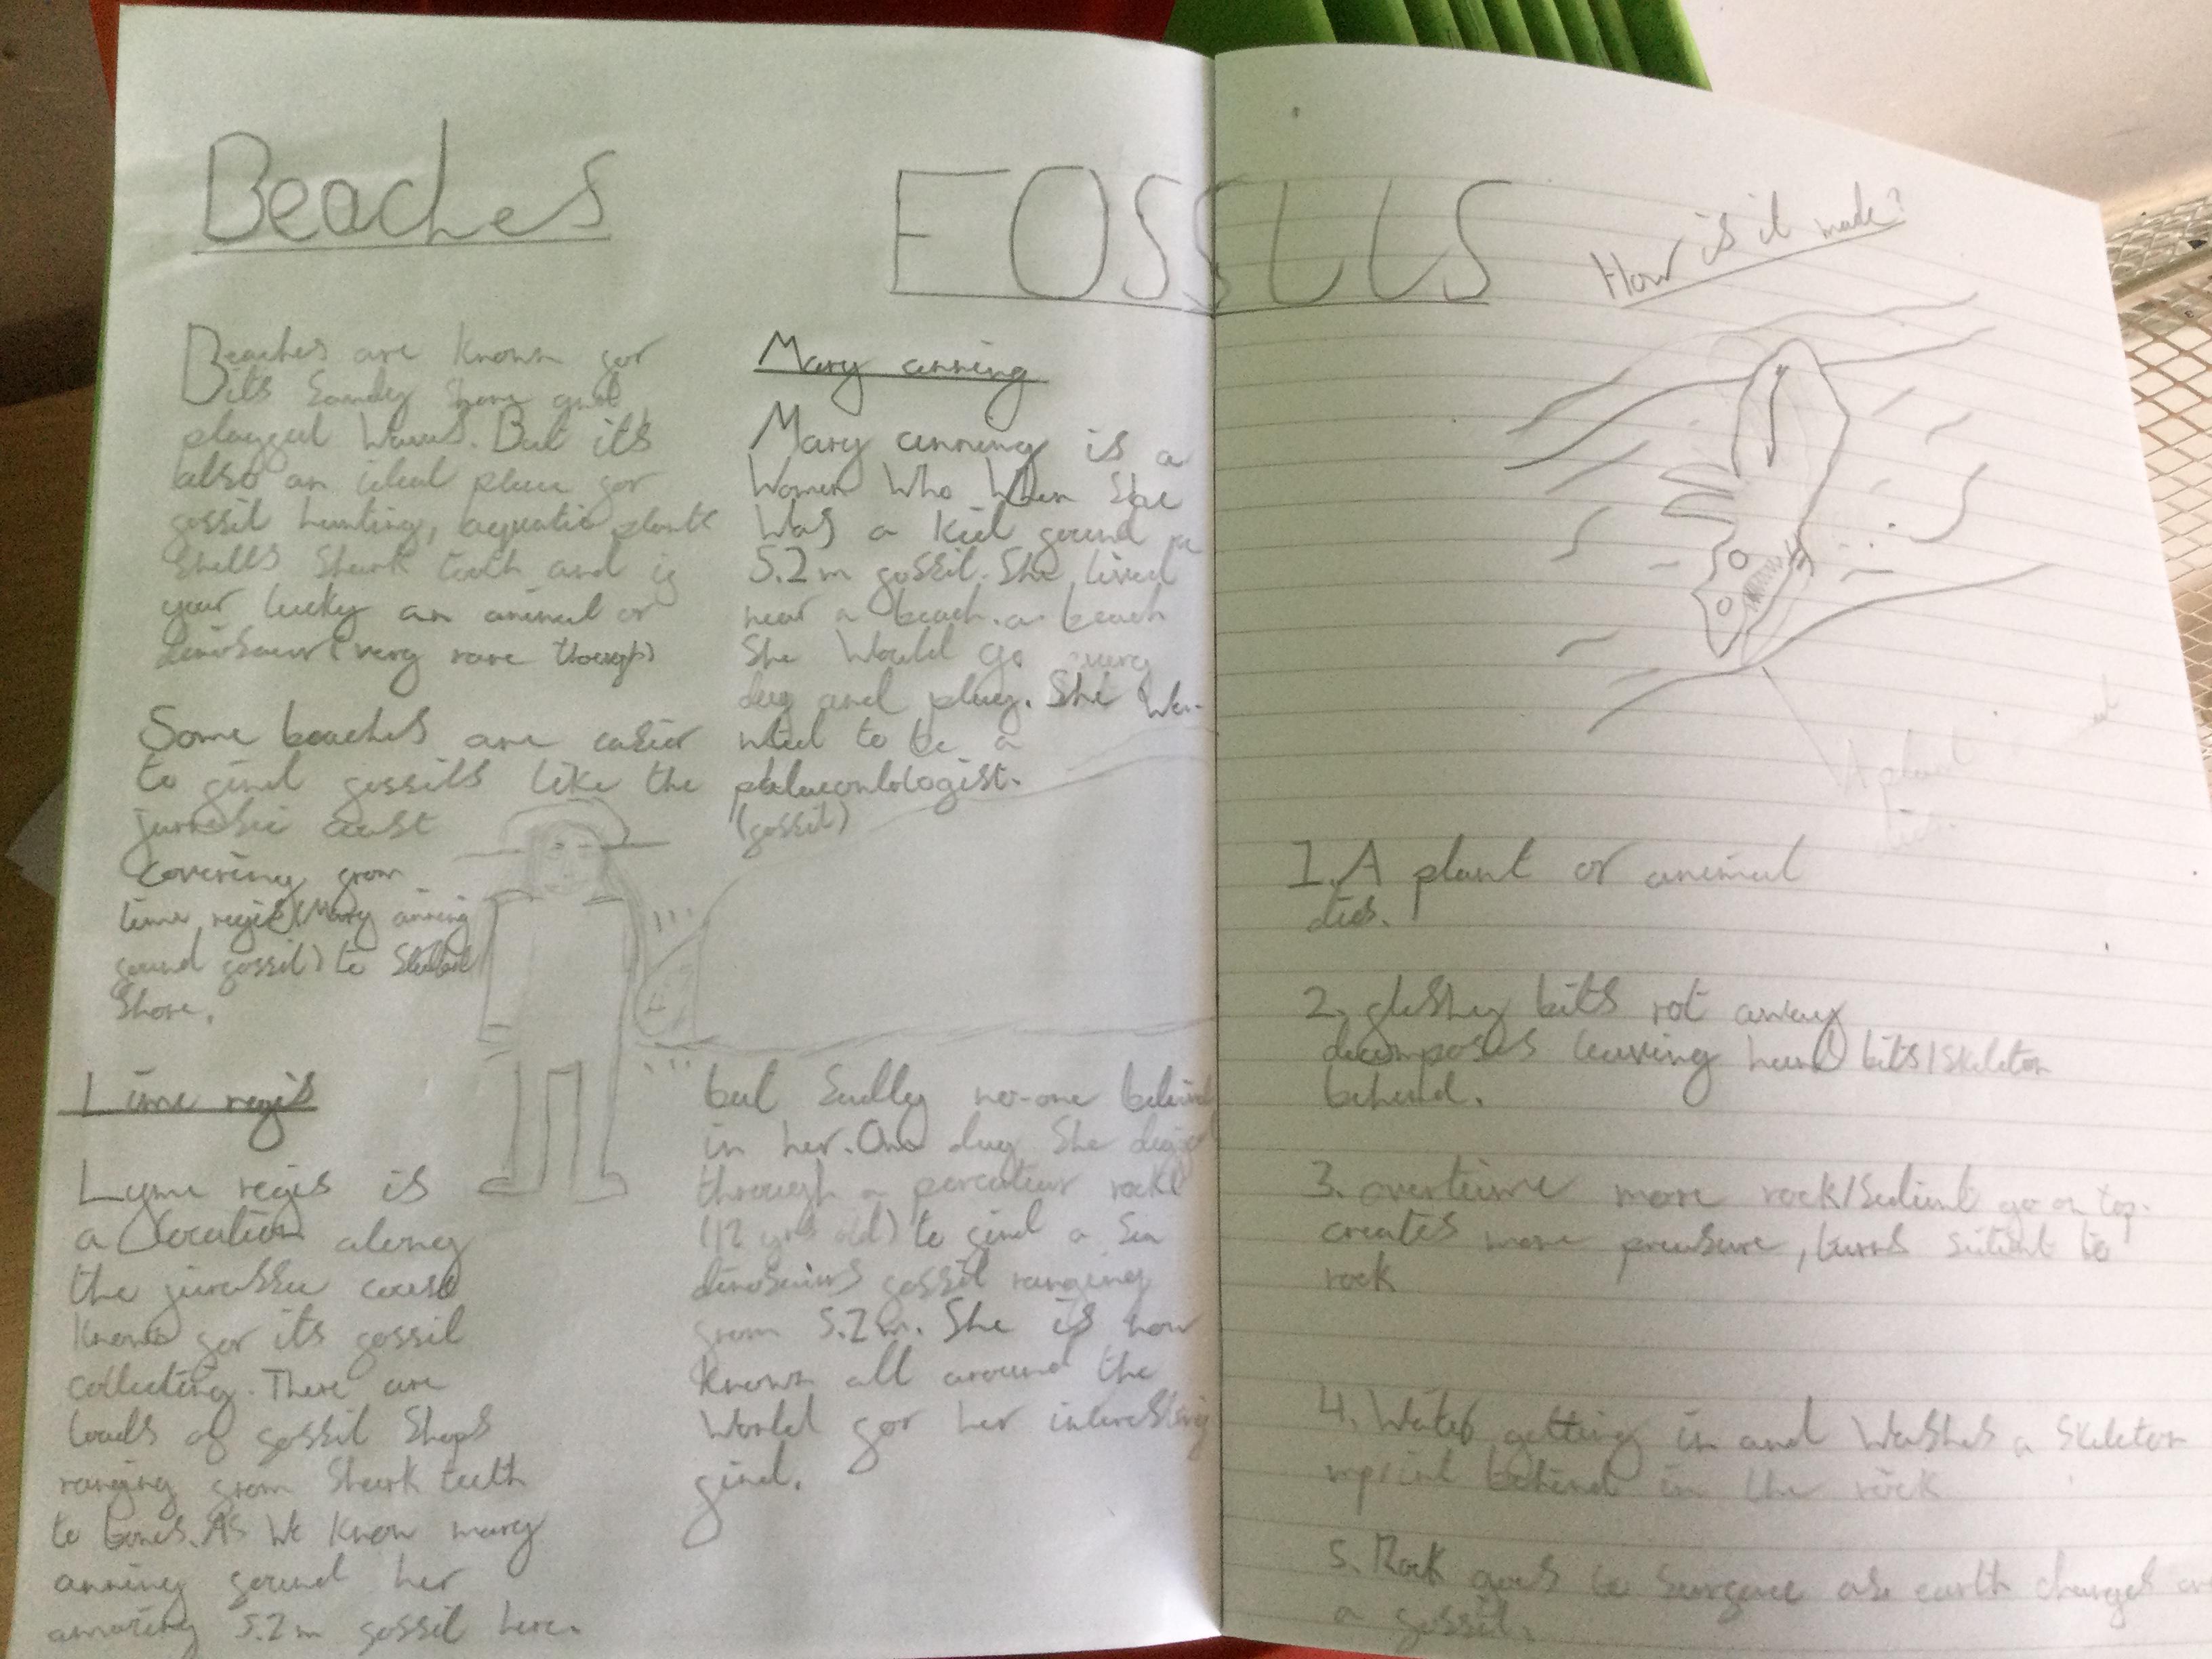 Beaches
FOSSILS
How is it made?
Beaches are known for
its Sandey Shore and
playfull Waves. But it's
also an ideal place for
fossil hunting, aquatic plants
Shells Shark tooth and if
your lucky an animal or
dinosaur (very rare though)
Some beaches are easier
to find fossils like the
jurassic coast
Covering from
lime regis (Mary anning
found fossil) to
Shore.
Lime regis
Lyme regis is
a location along
the jurassic coast
Known for its fossil
collecting. There are
loads of fossil Shops
ranging from Shark teeth
to bones. As We Know mary
anning found her
amazing 5.2m fossil here.
Mary anning
Mary anning is a
Women Who When She
Was a Kid found a
5.2m fossil. She lived
near a beach. a beach
She Would go every
day and play. She Wa-
nted to be a
palaeontologist.
(fossil)
but Sadly no-one believed
in her. One day She
through a rock
(12 yrs old) to find a Sea
dinosaurs fossil ranging
from 5.2m. She is now
Known all around the
World for her interesting
find.
A plant
dies.
1. A plant or animal
dies.
2. fleshy bits rot away
decomposes leaving hard bits/skeleton
behind.
3. overtime more rock/Sediment go on top.
creates more pressure, turns sediment to
rock
4. Water getting in and Washes a Skeleton
imprint behind in the rock
5. Rock goes to Surface as earth changes
a fossil.